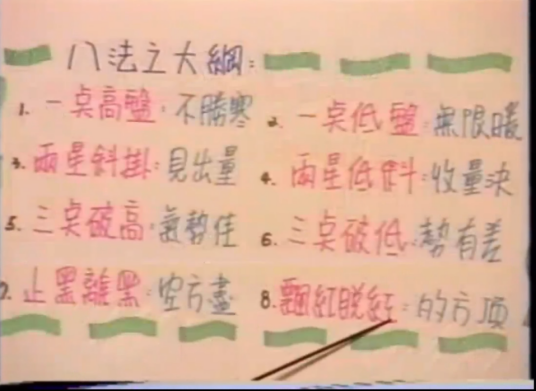 八法之大綱:
1. 一桌高盤:不勝寒 2. 一桌低盤:無限暖
3. 兩星斜掛:見出量 4. 兩星低斜:收量決
5. 三桌破高:氣勢佳 6. 三桌破低:勢有差
7. 止黑離黑:空方盡 8. 飄紅脱紅:的方頂